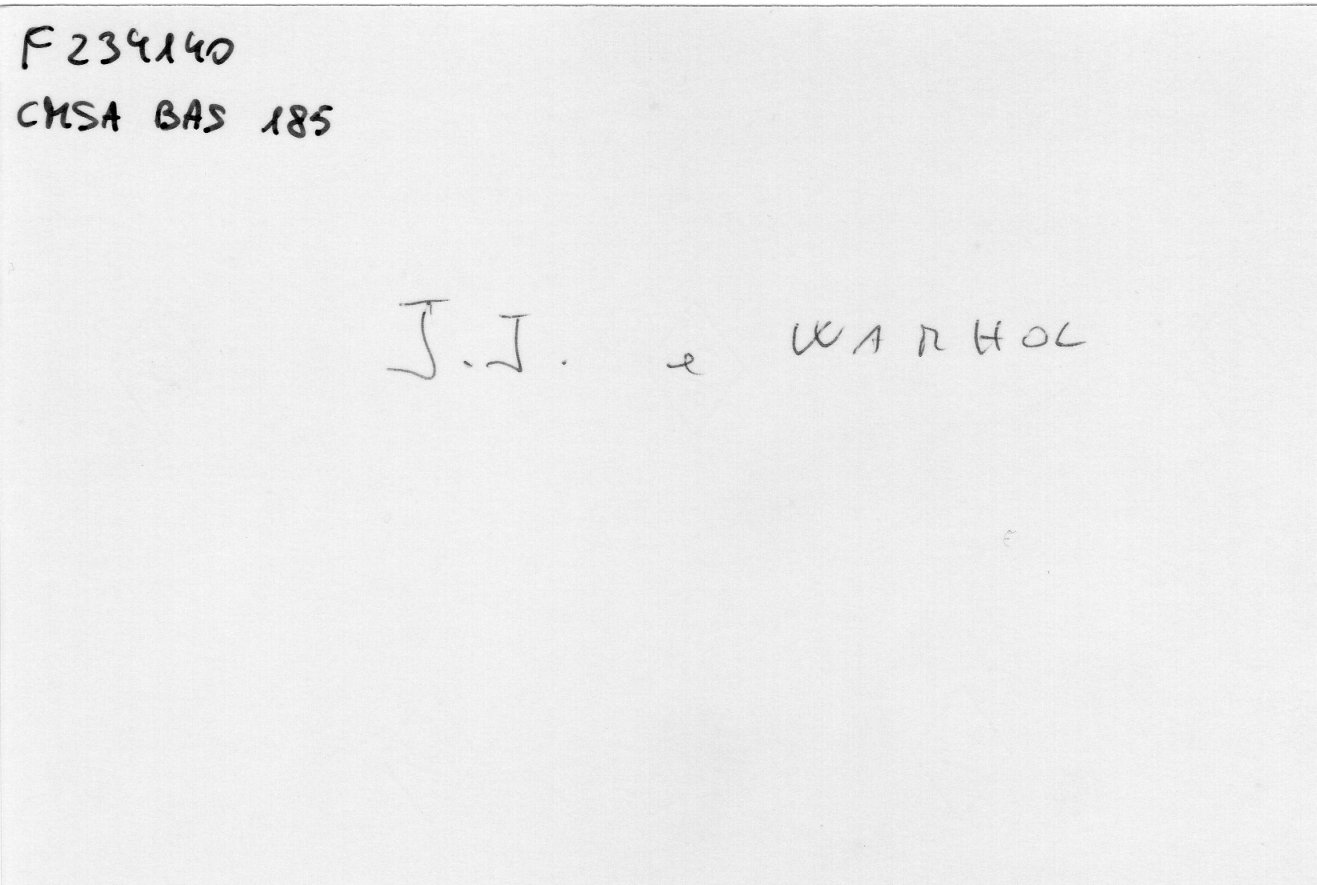 F 234140
CMSA BAS 185
J.J. e WARHOL